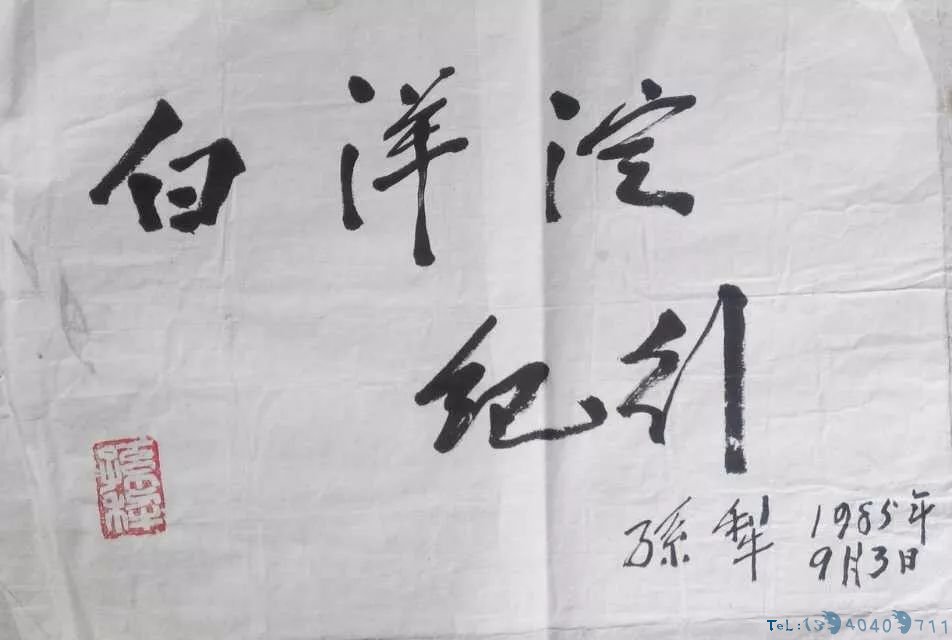 白洋淀
纪行
孫犁 1985年
9月3日